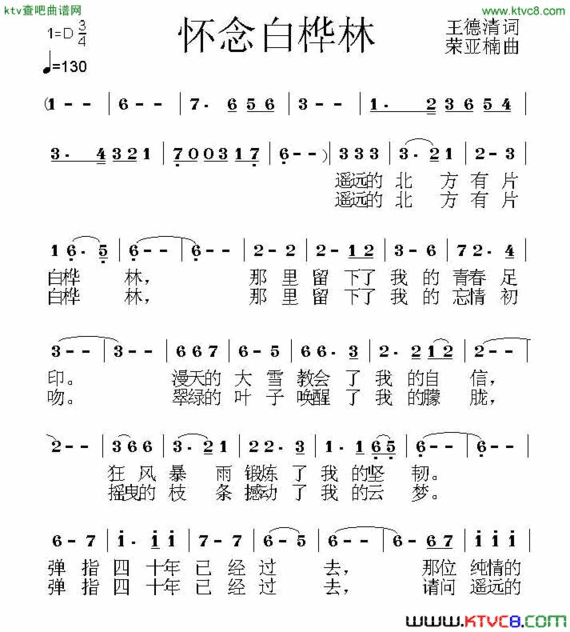 ktv查吧曲谱网
www.ktvc8.com
1=D 3/4
怀念白桦林
王德清词
荣亚楠曲
♩=130
(1 - - | 6 - - | 7· 6 5 6 | 3 - - | 1· 2 3 6 5 4 |
3· 4 3 2 1 | 7 0 0 3 1 7 | 6 - -) | 3 3 3 | 3· 2 1 | 2 - 3 |
遥远的 北 方 有 片
遥远的 北 方 有 片
1 6· 5 | 6 - - | 6 - - | 2 - 2 | 2 - 1 2 | 3 - 6 | 7 2· 4 |
白桦 林， 那 里 留 下了 我 的 青春 足
白桦 林， 那 里 留 下了 我 的 忘情 初
3 - - | 3 - - | 6 6 7 | 6 - 5 | 6 6· 3 | 2· 2 | 2· 1 2 | 2 - - |
印。 漫天的 大 雪 教会 了 我 的 自 信，
吻。 翠绿的 叶 子 唤醒 了 我 的 朦 胧，
2 - - | 3 6 6 | 3· 2 1 | 2 2· 3 | 1· 1 6 5 | 6 - - | 6 - - |
狂 风 暴 雨 锻炼 了 我 的坚 韧。
摇曳的 枝 条 撼动 了 我 的云 梦。
6 - 7 | 1· 1 1 | 7 - 7 | 6 - 5 | 6 - - | 6 - 6 7 | 1 1 1 | 1 1 1 |
弹 指 四 十年 已 经 过 去， 那位 纯情 的
弹 指 四 十年 已 经 过 去， 请问 遥远 的
www.KTVC8.COM